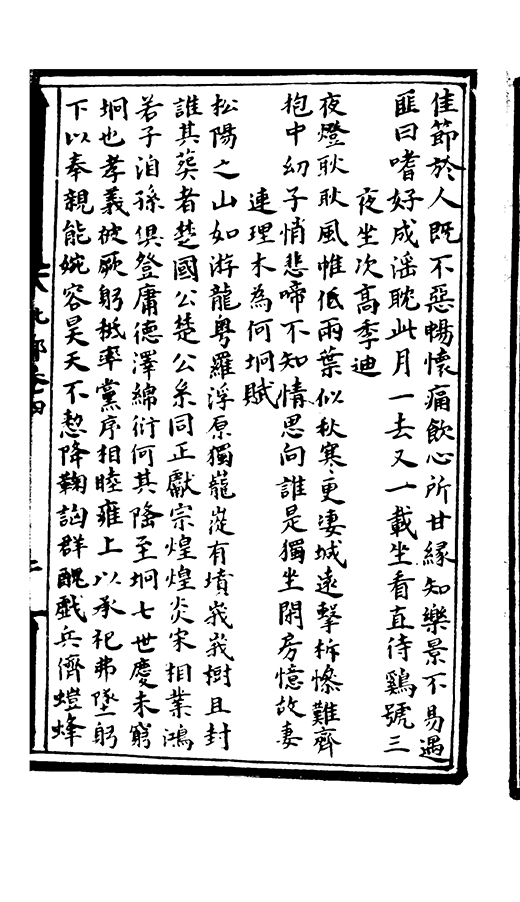 佳節於人既不惡暢懷痛飲心所甘緣知樂景不易遇
匪曰嗜好成滛耽此月一去又一載坐看直待鷄號三
夜坐次高季迪
夜燈耿耿風帷低兩葉似秋寒更凄城遠擊柝慘難齊
抱中幼子悄悲啼不知情思向誰是獨坐閑房憶故妻
連理木為何坰賦
松陽之山如游龍粤羅浮原獨巃嵸有墳峩峩樹且封
誰其葬者楚國公楚公系同正獻宗煌煌炎宋相業鴻
若子洎孫俱登庸德澤綿衍何其隆至坰七世慶未窮
坰也孝義彼厥躬祗率黨序相睦雍上以承祀弗墜躬
下以奉親能婉容昊天不憖降鞠訩群醜戯兵儕螘蜂